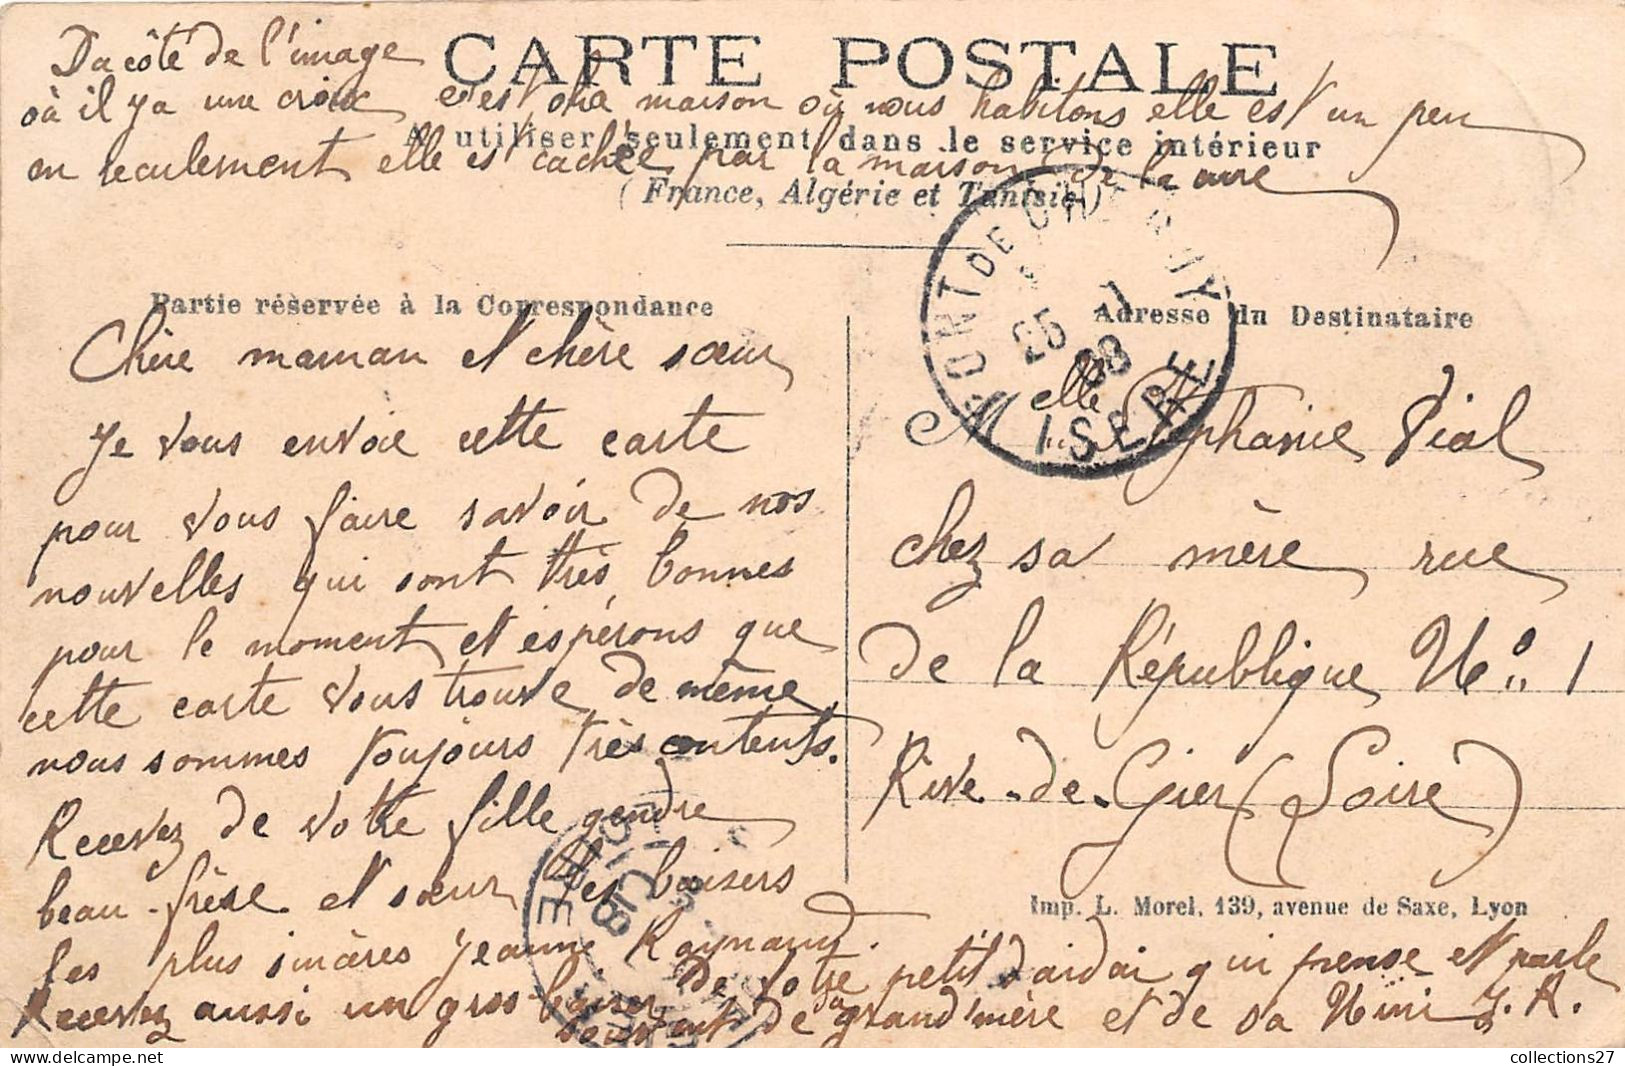 Da côté de l'image
CARTE POSTALE
où il y a une croix c'est la maison où nous habitons elle est un peu
A utiliser seulement dans le service intérieur
en reculement elle est cachée par la maison de la cure
(France, Algérie et Tunisie)
Partie réservée à la Correspondance
Chère maman et chère sœur
Je vous envoie cette carte
pour vous faire savoir de nos
nouvelles qui sont très bonnes
pour le moment et espérons que
cette carte vous trouve de même
nous sommes toujours très contents.
Recevez de votre fille gendre
beau-frère et sœur les baisers
les plus sincères Jeanne Raynaud.
Recevez aussi un gros baiser de votre petit dardai qui pense et parle
souvent de sa grand'mère et de sa Nini J. R.
PONT DE CHERUY
25 -1
08
ISERE
Adresse du Destinataire
Melle Stéphanie Vial
chez sa mère rue
de la République No. 1
Rive-de-Gier (Loire)
Imp. L. Morel, 139, avenue de Saxe, Lyon
collections27